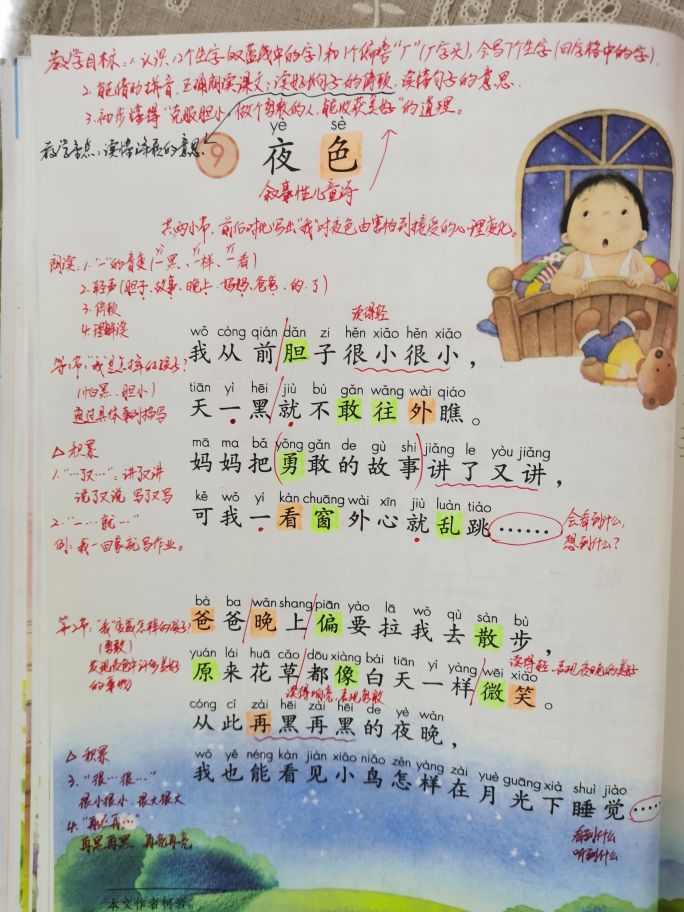 教学目标：1.认识12个生字(双蓝线中的字)和1个偏旁"厂"(厂字头),会写7个生字(田字格中的字).
2.能借助拼音,正确朗读课文;读好句子的停顿,读懂句子的意思.
3.初步懂得"克服胆小,做个勇敢的人,能收获美好"的道理。
教学重点：读懂诗歌的意思.
yè sè
9 夜 色
叙事性儿童诗
共两小节,前后对比写出"我"对夜色由害怕到接受的心理变化。
朗读：1."一"的音变(一黑、一样、一看)
2.轻声(胆子、故事、晚上、妈妈、爸爸、的、了)
3.停顿
4.理解读
读得轻
wǒ cóng qián dǎn zi hěn xiǎo hěn xiǎo
我从前胆子很小很小，
(怕黑、胆小)
通过具体事例描写
tiān yì hēi jiù bù gǎn wǎng wài qiáo
天一黑就不敢往外瞧。
△积累
1."…了又…"：讲了又讲
说了又说 写了又写
mā ma bǎ yǒng gǎn de gù shi jiǎng le yòu jiǎng
妈妈把勇敢的故事讲了又讲，
2."一…就…"
例：我一回家就写作业。
kě wǒ yí kàn chuāng wài xīn jiù luàn tiào
可我一看窗外心就乱跳……
会看到什么,
想到什么?
bà ba wǎn shang piān yào lā wǒ qù sàn bù
爸爸晚上偏要拉我去散步，
第2节："我"变成怎样的孩子?
(勇敢)
发现夜色中许多美好
的事物
yuán lái huā cǎo dōu xiàng bái tiān yí yàng wēi xiào
读得轻,表现夜晚的美好
原来花草都像白天一样微笑。
读得响亮,表现勇敢
cóng cǐ zài hēi zài hēi de yè wǎn
从此再黑再黑的夜晚，
wǒ yě néng kàn jiàn xiǎo niǎo zěn yàng zài yuè guāng xià shuì jiào
我也能看见小鸟怎样在月光下睡觉……
△积累
3."很…很…"
很小很小、很大很大
4."再…再…"
再黑再黑 再亮再亮
看到什么
听到什么
本文作者柯岩。